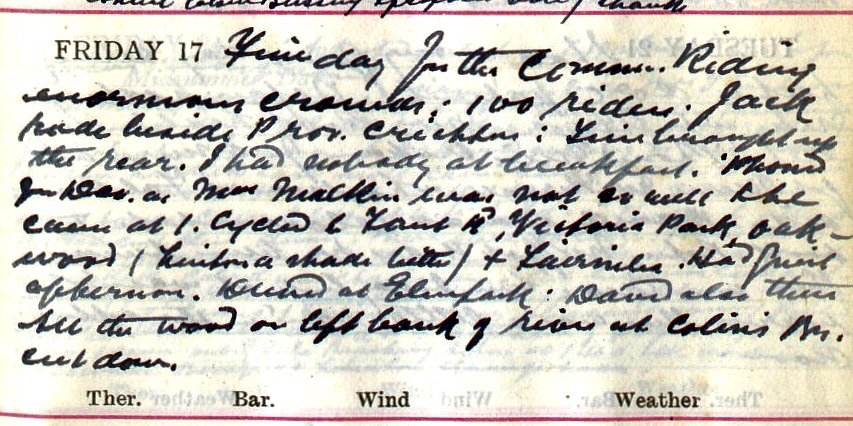 FRIDAY 17 Fine day for the Common Riding
enormous crowds; 100 riders. Jack
rode beside Prov. Crichton: brought up
the rear. I had nobody at breakfast. Phoned
for as Mrs was not so well & he
came at 1. Cycled to Victoria Park, Oak-
wood ( a shade better) & Had quiet
afternoon. Dined at : David also there
All the wood on left bank of river at Colin's
cut down.
Ther. Bar. Wind Weather